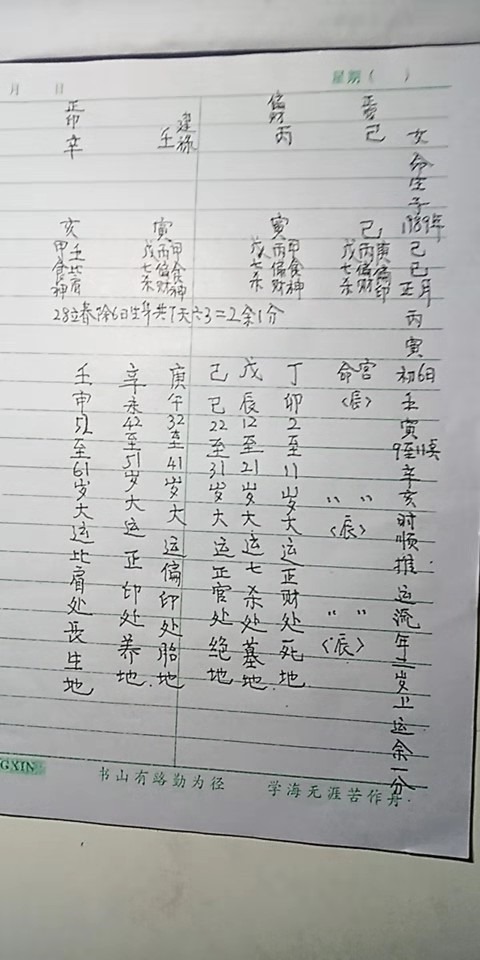 月 日 星期( )
女命生子1989年己巳正月丙寅初6日壬寅9至11点辛亥时顺推运流年二岁上运余一分
己
巳
丙庚
偏偏
财印
戊
七
杀
偏财
丙
寅
戊丙甲
七偏食
杀财神
建禄
壬
寅
戊丙甲
七偏食
杀财神
正印
辛
亥
甲壬
食比
神肩
28立春除6日生年共7天六3=2余1分
命宫
〈辰〉
〃 〃
〈辰〉
〃 〃
〈辰〉
丁卯2至11岁大运正财处死地
戊辰12至21岁大运七杀处墓地
己巳22至31岁大运正官处绝地
庚午32至41岁大运偏印处胎地
辛未42至51岁大运正印处养地
壬申52至61岁大运比肩处长生地
GXIN
书山有路勤为径 学海无涯苦作舟